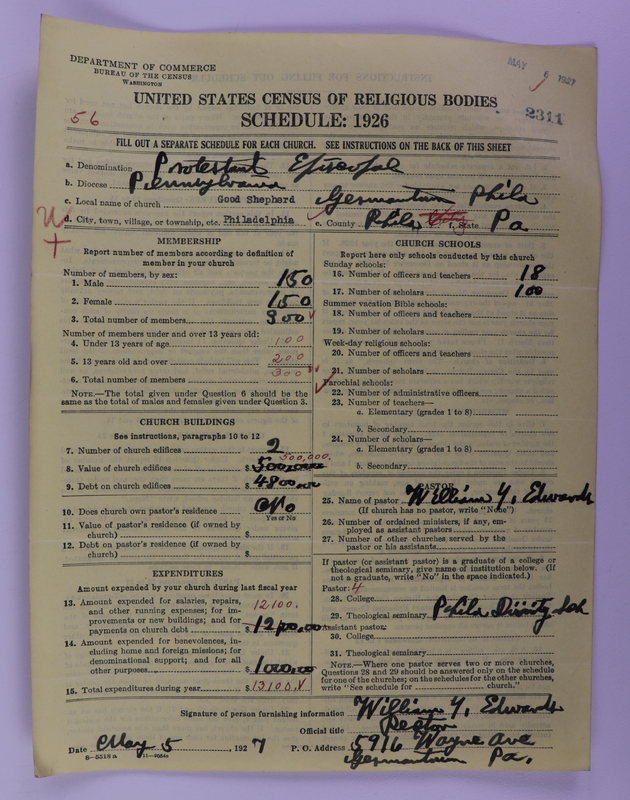 DEPARTMENT OF COMMERCE
BUREAU OF THE CENSUS
WASHINGTON
MAY 6 1927
2311
56
UNITED STATES CENSUS OF RELIGIOUS BODIES
SCHEDULE: 1926
FILL OUT A SEPARATE SCHEDULE FOR EACH CHURCH. SEE INSTRUCTIONS ON THE BACK OF THIS SHEET
a. Denomination Protestant Episcopal
b. Diocese Pennsylvania
c. Local name of church Good Shepherd Germantown Phila
d. City, town, village, or township, etc. Philadelphia e. County Phila f. State Pa
MEMBERSHIP
Report number of members according to definition of
member in your church
Number of members, by sex:
1. Male 150
2. Female 150
3. Total number of members 300
Number of members under and over 13 years old:
4. Under 13 years of age 100
5. 13 years old and over 200
6. Total number of members 300
NOTE.—The total given under Question 6 should be
same as the total of males and females given under Question 3.
CHURCH BUILDINGS
See instructions, paragraphs 10 to 12
7. Number of church edifices 2
500,000.
8. Value of church edifices $ 500,000.00
9. Debt on church edifices $ 4800.00
10. Does church own pastor's residence No
Yes or No
11. Value of pastor's residence (if owned by
church) $
12. Debt on pastor's residence (if owned by
church) $
EXPENDITURES
Amount expended by your church during last fiscal year
13. Amount expended for salaries, repairs,
and other running expenses; for im-
provements or new buildings; and for
payments on church debt $ 12100.00
12,100.
14. Amount expended for benevolences, in-
cluding home and foreign missions; for
denominational support; and for all
other purposes $ 1000.00
15. Total expenditures during year $ 13100.
CHURCH SCHOOLS
Report here only schools conducted by this church
Sunday schools:
16. Number of officers and teachers 18
17. Number of scholars 100
Summer vacation Bible schools:
18. Number of officers and teachers
19. Number of scholars
Week-day religious schools:
20. Number of officers and teachers
21. Number of scholars
Parochial schools:
22. Number of administrative officers
23. Number of teachers—
a. Elementary (grades 1 to 8)
b. Secondary
24. Number of scholars—
a. Elementary (grades 1 to 8)
b. Secondary
PASTOR
25. Name of pastor William Y. Edwards
(If church has no pastor, write "None")
26. Number of ordained ministers, if any, em-
ployed as assistant pastors
27. Number of other churches served by the
pastor or his assistants
If pastor (or assistant pastor) is a graduate of a college or
theological seminary, give name of institution below. (If
not a graduate, write "No" in the space indicated.)
Pastor: 4
28. College
29. Theological seminary Phila Divinity Sch
Assistant pastor:
30. College
31. Theological seminary
NOTE.—Where one pastor serves two or more churches,
Questions 28 and 29 should be answered only on the schedule
for one of the churches; on the schedules for the other churches,
write "See schedule for church."
Signature of person furnishing information William Y. Edwards
Official title Rector
Date May 5, 1927 P. O. Address 5916 Wayne Ave
Germantown Pa.
8-5518a 11-9084a